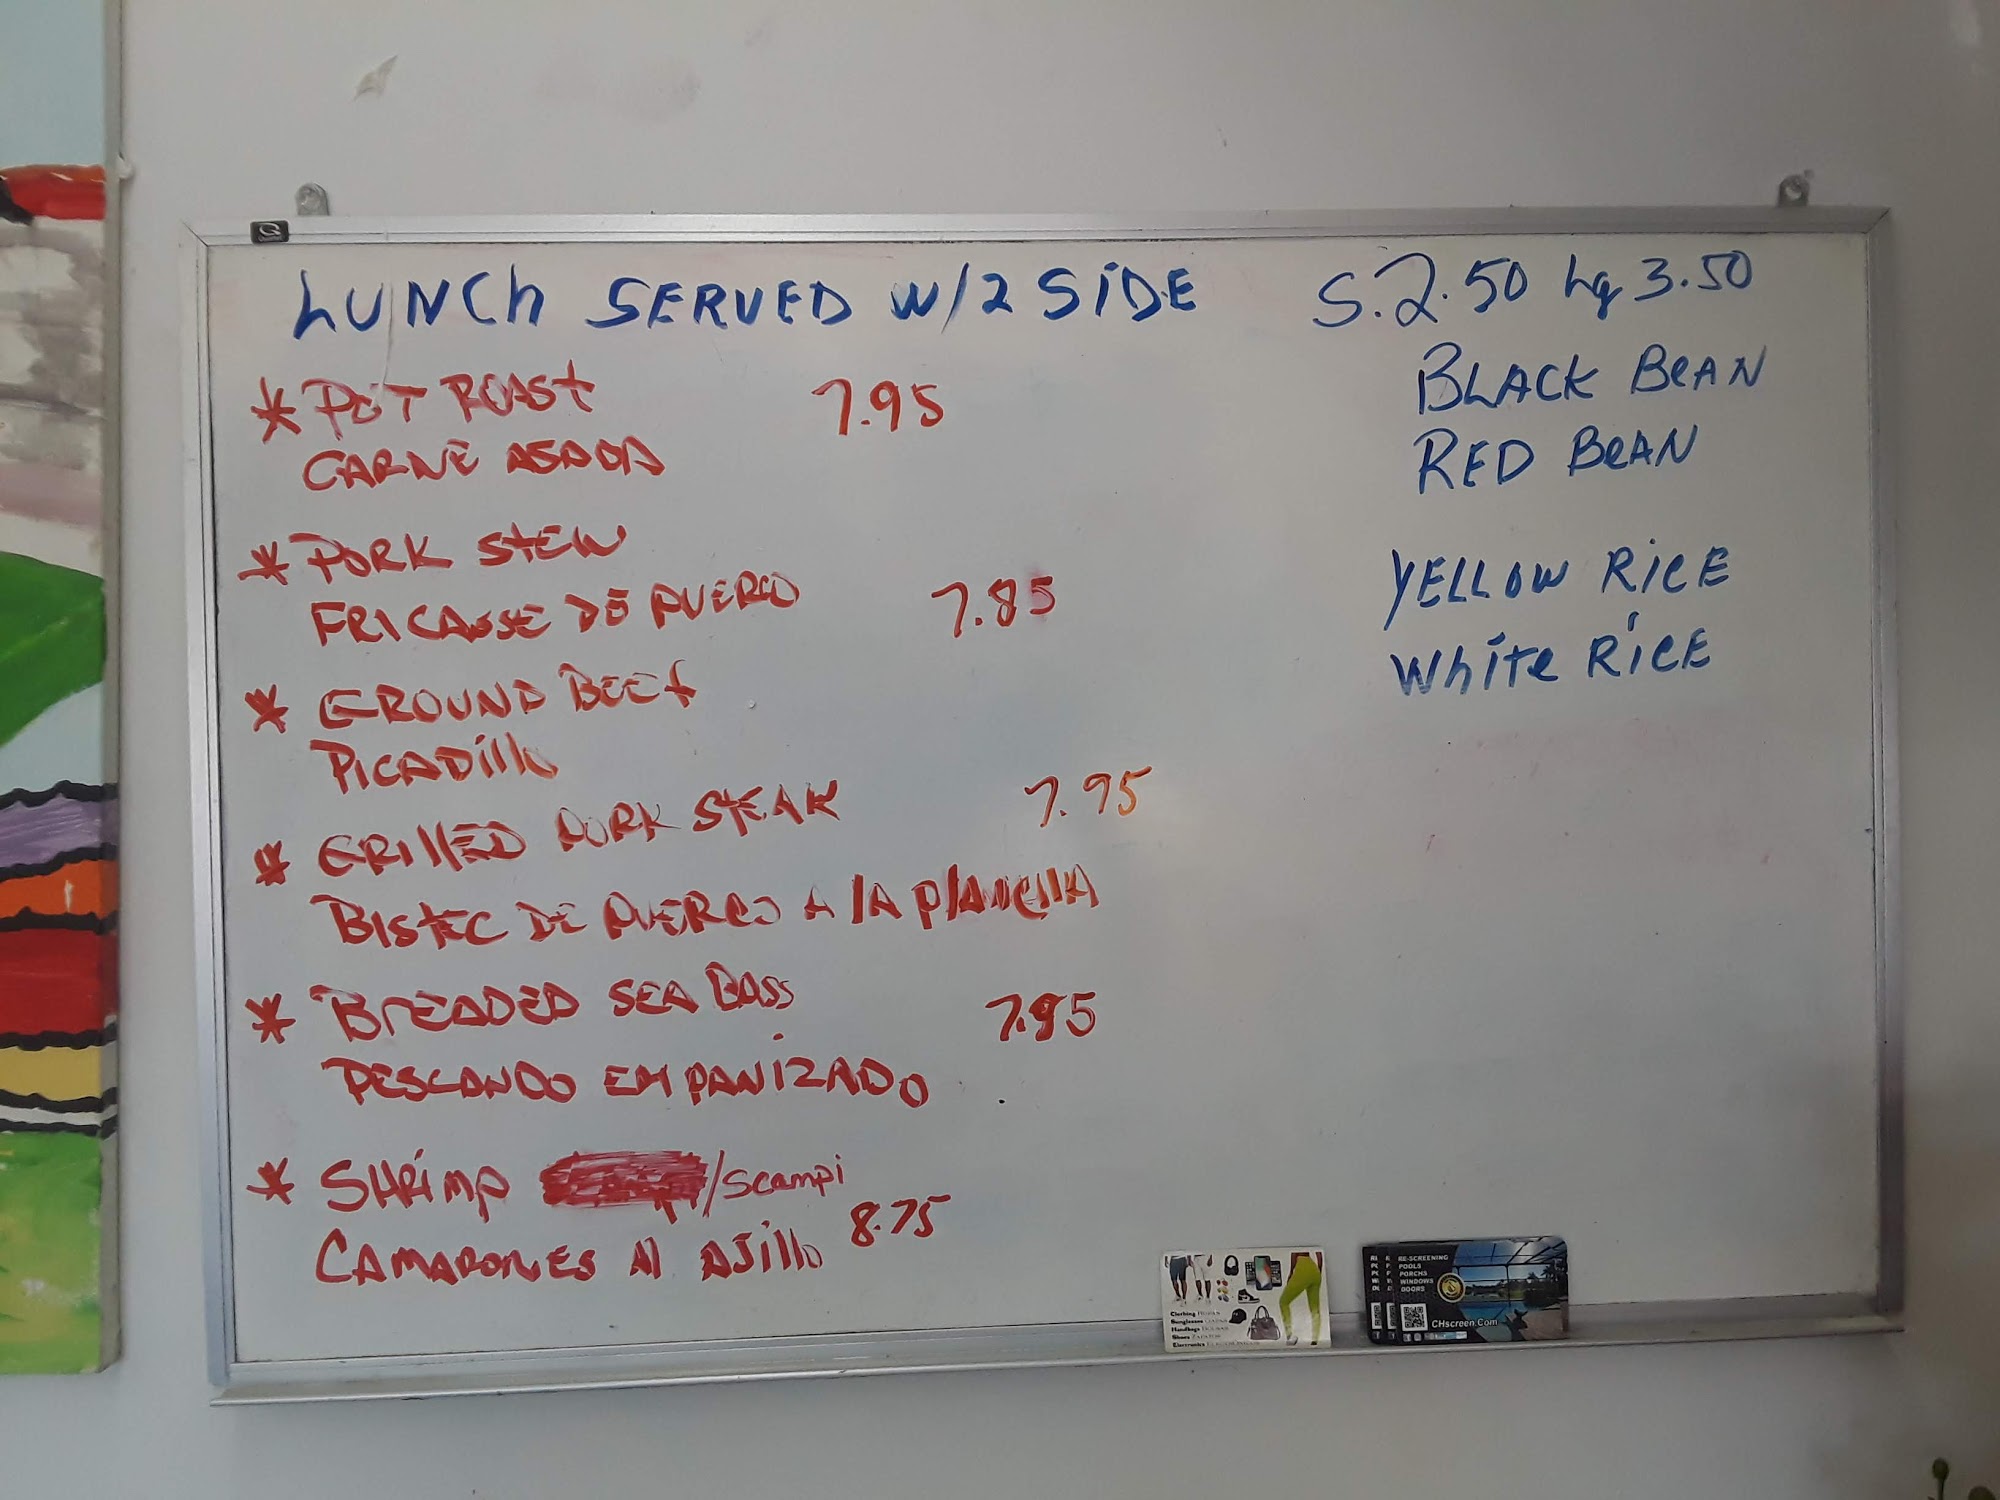 LUNCh SERVED W/2 SiDE
* POT ROASt 7.95
CARNE ASADA
* PORK StEW
FRICASSE DE PUERCO 7.85
* GROUND BEEf
PICADillo
* GRillED PORK STEAK 7.95
BIStEC DE PUERCO A lA plANCHA
* BrEADED SEA BASS 7.95
PESCANDO EMPANiZADO
* SHRiMP /Scampi
CAMARONES Al AJillo 8.75
S. 2.50 Lg 3.50
BLACK BeAN
RED BeAN
YELLOW RiCE
WhiTe RiCE
Clothing
Sunglasses
Handbags
Shoes ZAPATOS
Electronics
RE-SCREENING
POOLS
PORCHS
WINDOWS
DOORS
CHscreen.Com